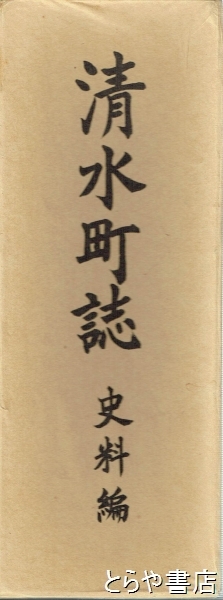 清水町誌
史料編
とらや書店